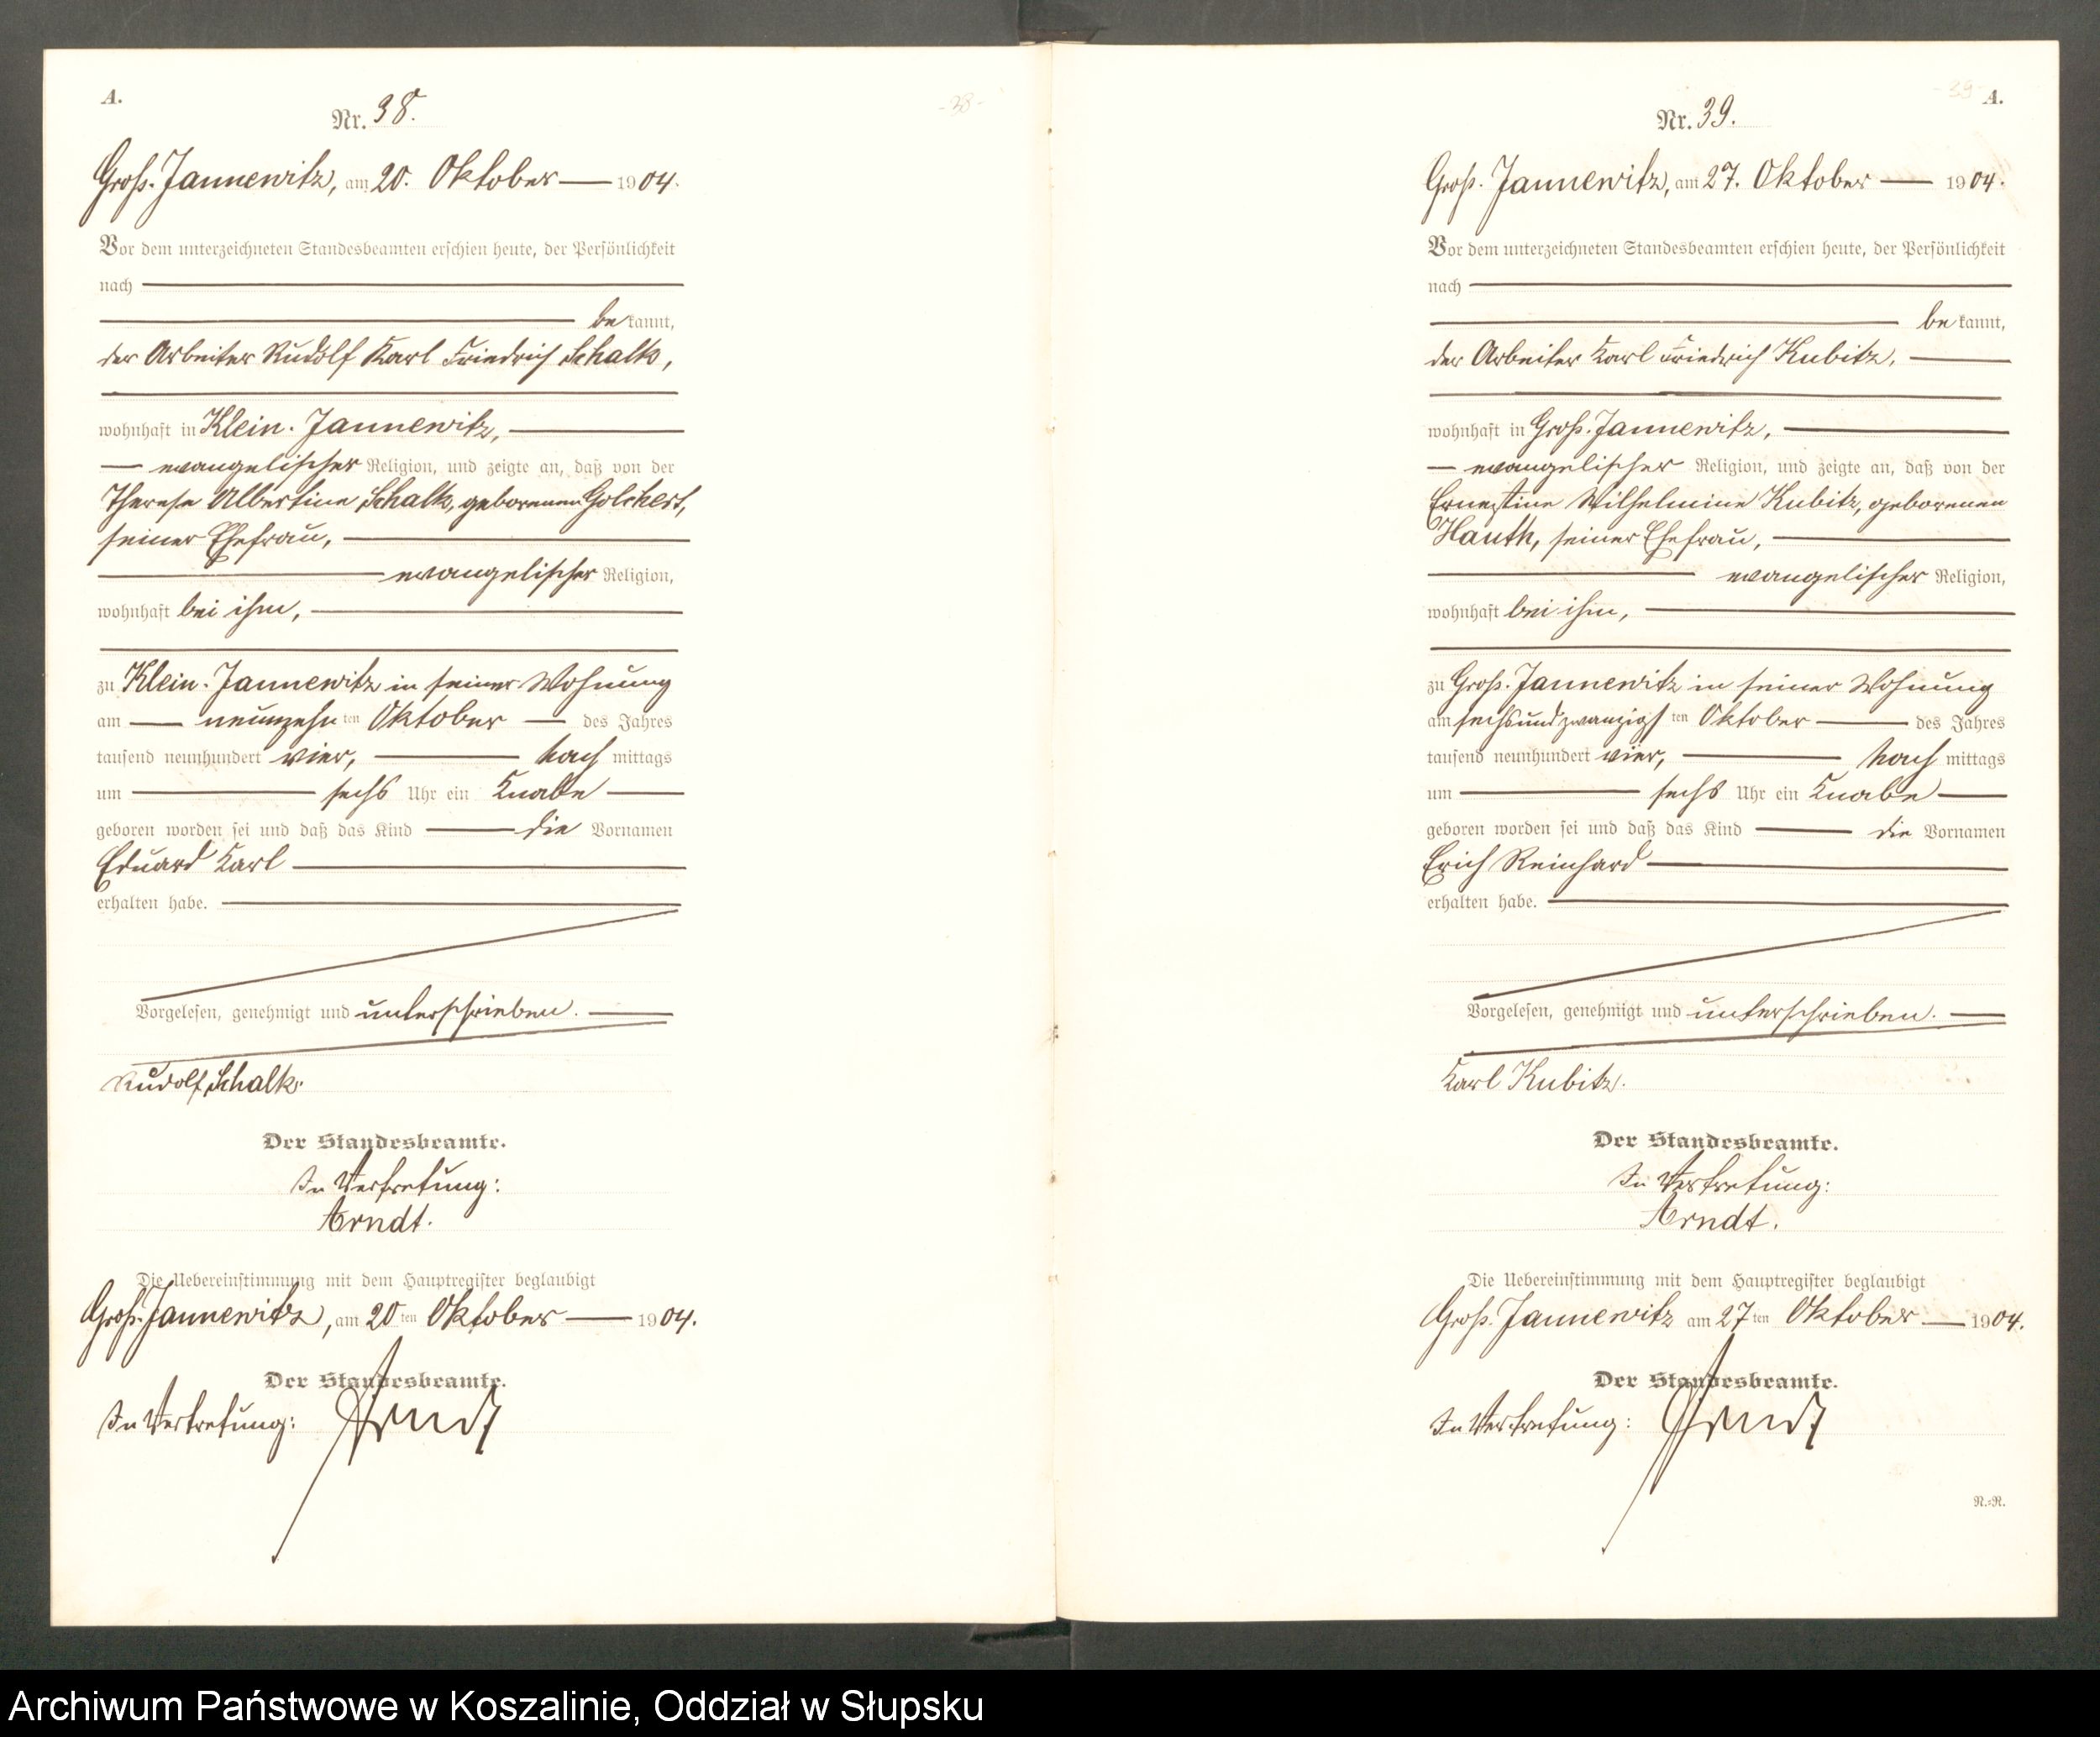 A.
Nr. 38.
Groß-Jannewitz, am 20. Oktober 1904.
Vor dem unterzeichneten Standesbeamten erschien heute, der Persönlichkeit
nach
bekannt,
der Arbeiter Rudolf Karl Friedrich Schalk,
wohnhaft in Klein-Jannewitz,
evangelischer Religion, und zeigte an, daß von der
Therese Albertine Schalk, geborenen Golchert,
seiner Ehefrau,
evangelischer Religion,
wohnhaft bei ihm,
zu Klein-Jannewitz in seiner Wohnung
am neunzehnten Oktober des Jahres
tausend neunhundert vier, nachmittags
um sechs Uhr ein Knabe
geboren worden sei und daß das Kind die Vornamen
Eduard Karl
erhalten habe.
Vorgelesen, genehmigt und unterschrieben.
Rudolf Schalk.
Der Standesbeamte.
In Vertretung:
Arndt.
Die Uebereinstimmung mit dem Hauptregister beglaubigt
Groß-Jannewitz, am 20ten Oktober 1904.
Der Standesbeamte.
In Vertretung: Arndt
-38-
-39- A.
Nr. 39.
Groß-Jannewitz, am 27. Oktober 1904.
Vor dem unterzeichneten Standesbeamten erschien heute, der Persönlichkeit
nach
bekannt,
der Arbeiter Karl Friedrich Kubitz,
wohnhaft in Groß-Jannewitz,
evangelischer Religion, und zeigte an, daß von der
Ernestine Wilhelmine Kubitz, geborenen
Hauth, seiner Ehefrau,
evangelischer Religion,
wohnhaft bei ihm,
zu Groß-Jannewitz in seiner Wohnung
am sechsundzwanzigsten Oktober des Jahres
tausend neunhundert vier, nachmittags
um sechs Uhr ein Knabe
geboren worden sei und daß das Kind die Vornamen
Erich Reinhard
erhalten habe.
Vorgelesen, genehmigt und unterschrieben.
Karl Kubitz.
Der Standesbeamte.
In Vertretung:
Arndt.
Die Uebereinstimmung mit dem Hauptregister beglaubigt
Groß-Jannewitz am 27ten Oktober 1904.
Der Standesbeamte.
In Vertretung: Arndt
N.-R.
Archiwum Państwowe w Koszalinie, Oddział w Słupsku